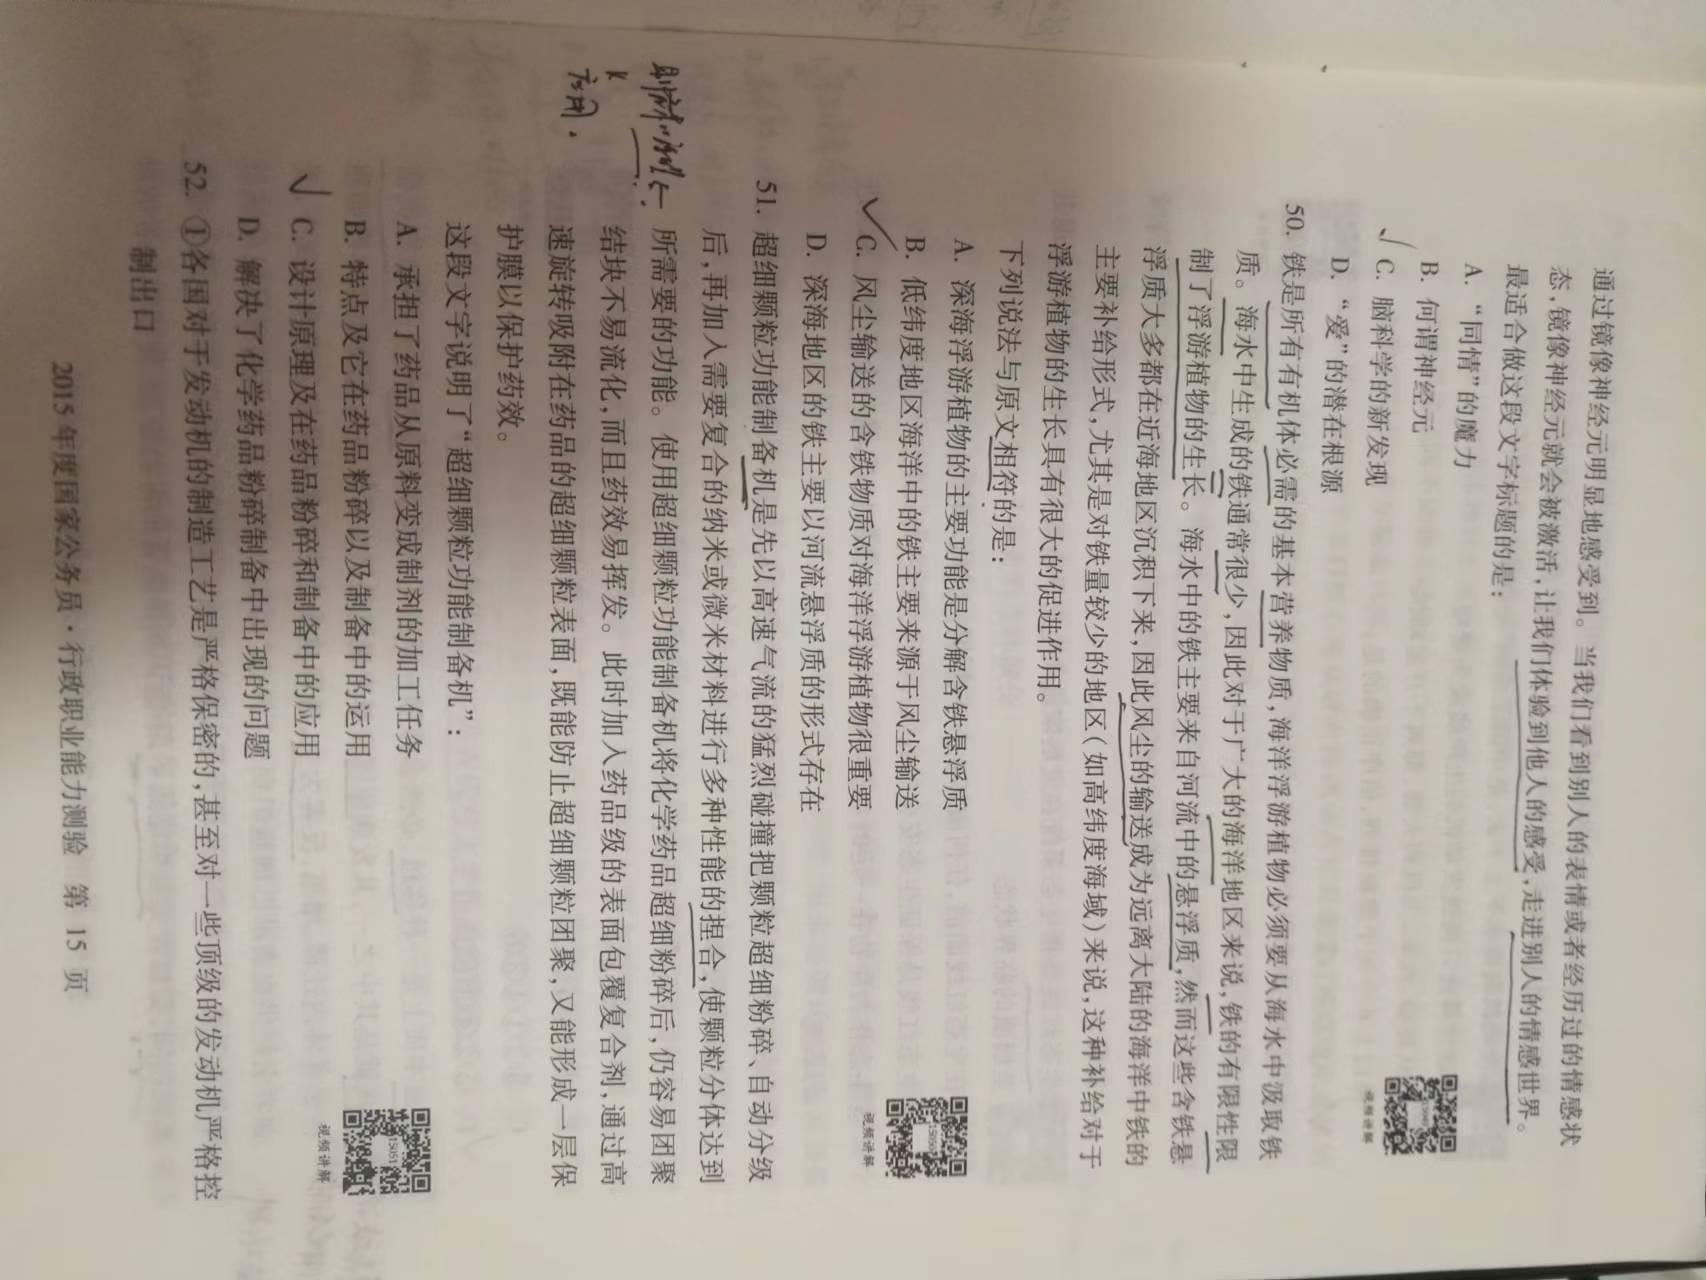 通过镜像神经元明显地感受到。当我们看到别人的表情或者经历过的情感状
态,镜像神经元就会被激活,让我们体验到他人的感受,走进别人的情感世界。
最适合做这段文字标题的是:
A. “同情”的魔力
B. 何谓神经元
C. 脑科学的新发现
D. “爱”的潜在根源
视频讲解
50. 铁是所有有机体必需的基本营养物质,海洋浮游植物必须要从海水中汲取铁
质。海水中生成的铁通常很少,因此对于广大的海洋地区来说,铁的有限性限
制了浮游植物的生长。海水中的铁主要来自河流中的悬浮质,然而这些含铁悬
浮质大多都在近海地区沉积下来,因此风尘的输送成为远离大陆的海洋中铁的
主要补给形式,尤其是对铁量较少的地区(如高纬度海域)来说,这种补给对于
浮游植物的生长具有很大的促进作用。
下列说法与原文相符的是:
A. 深海浮游植物的主要功能是分解含铁悬浮质
B. 低纬度地区海洋中的铁主要来源于风尘输送
C. 风尘输送的含铁物质对海洋浮游植物很重要
D. 深海地区的铁主要以河流悬浮质的形式存在
15050
视频讲解
51. 超细颗粒功能制备机是先以高速气流的猛烈碰撞把颗粒超细粉碎、自动分级
后,再加入需要复合的纳米或微米材料进行多种性能的捏合,使颗粒分体达到
所需要的功能。使用超细颗粒功能制备机将化学药品超细粉碎后,仍容易团聚
结块不易流化,而且药效易挥发。此时加入药品级的表面包覆复合剂,通过高
速旋转吸附在药品的超细颗粒表面,既能防止超细颗粒团聚,又能形成一层保
护膜以保护药效。
这段文字说明了“超细颗粒功能制备机”:
A. 承担了药品从原料变成制剂的加工任务
B. 特点及它在药品粉碎以及制备中的运用
C. 设计原理及在药品粉碎和制备中的应用
D. 解决了化学药品粉碎制备中出现的问题
15051
视频讲解
52. ①各国对于发动机的制造工艺是严格保密的,甚至对一些顶级的发动机严格控
制出口
2015年度国家公务员·行政职业能力测验 第 15 页